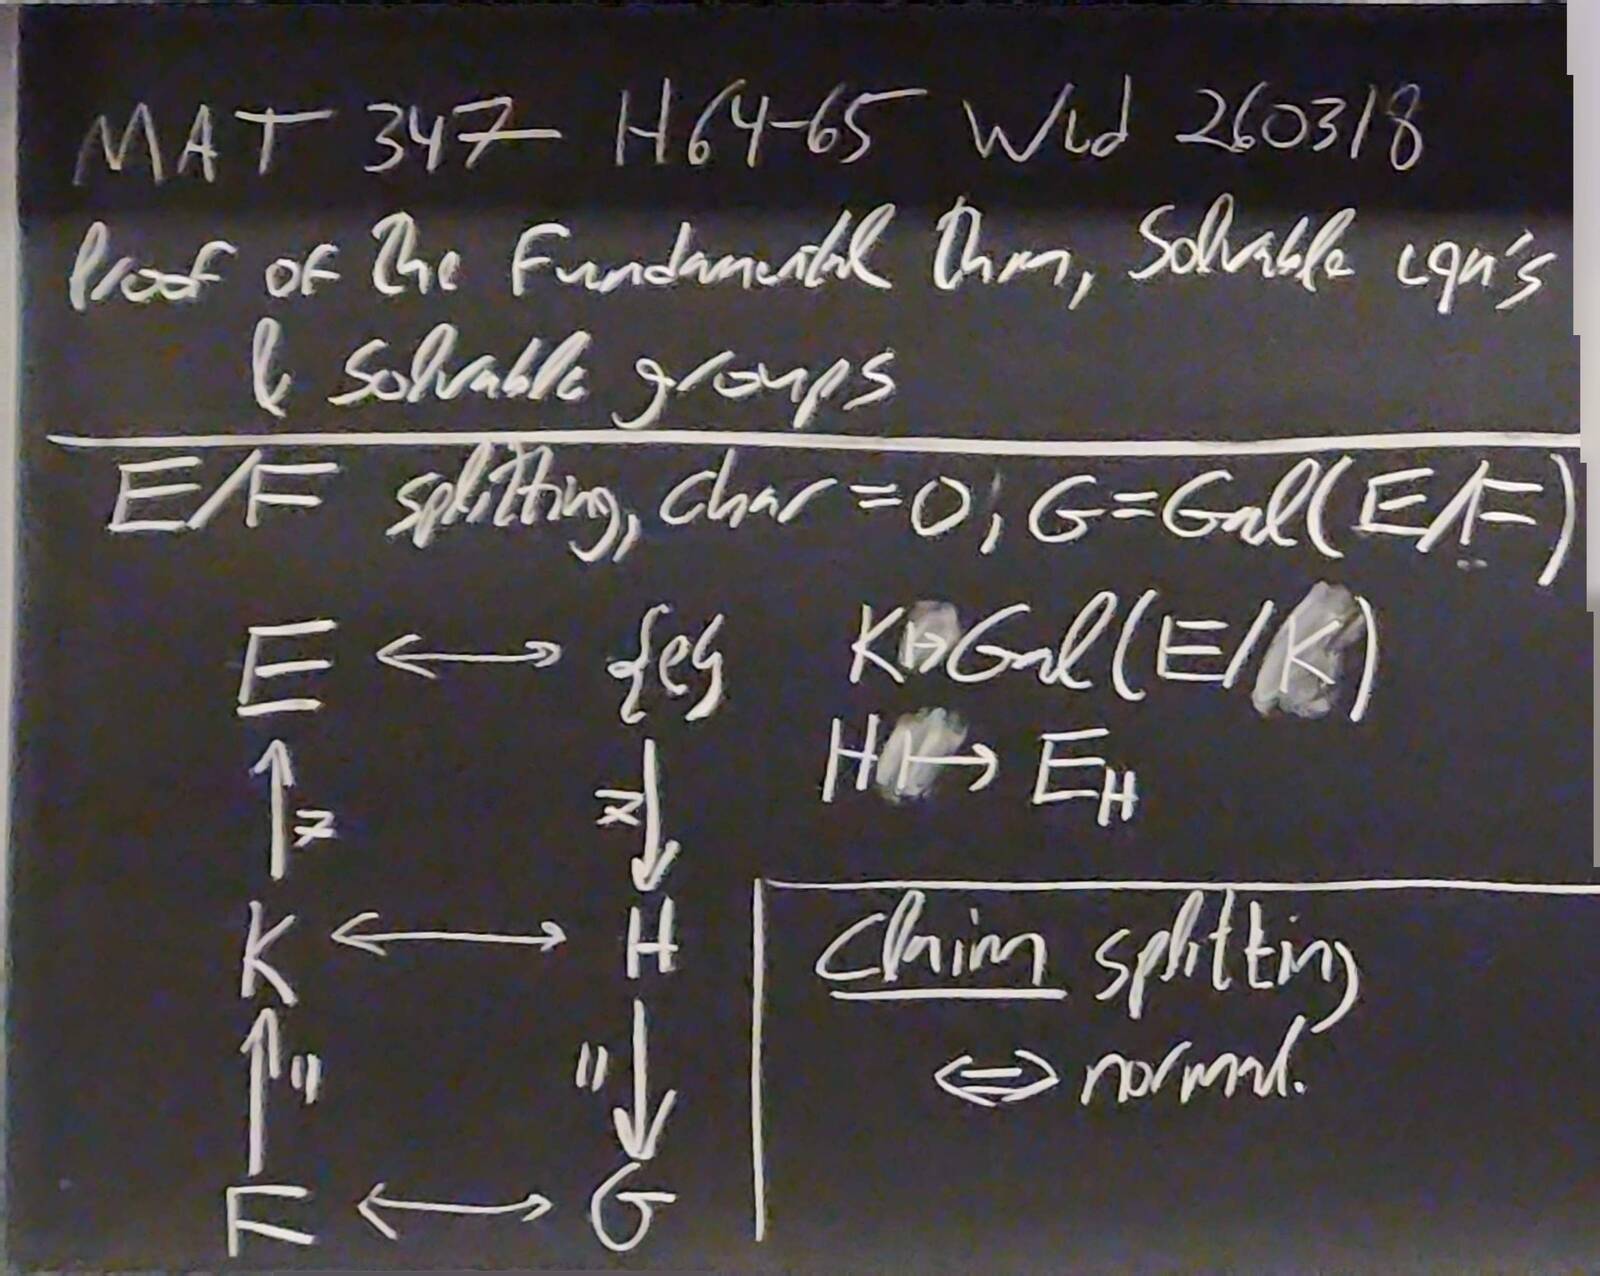 MAT 347 H64-65 Wed 260318
Proof of the Fundamental thm, Solvable eqn's
& Solvable groups
E/F splitting, char = 0; G=Gal(E/F)
E ↔ {e} K↦Gal(E/K)
H ↦ E_H
K ↔ H
Claim splitting
⇔ normal.
F ↔ G